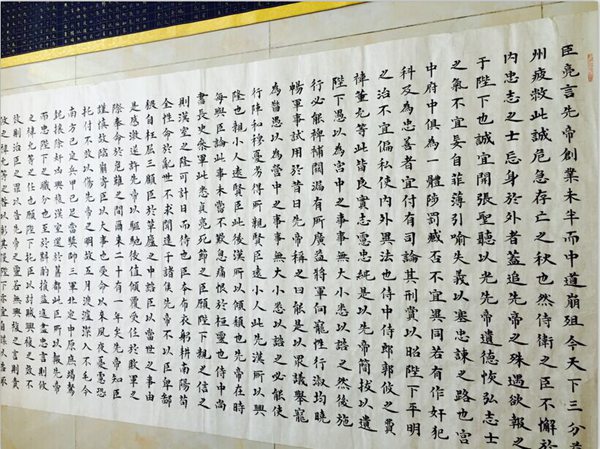 臣亮言先帝創業未半而中道崩殂今天下三分益
州疲敝此誠危急存亡之秋也然侍衛之臣不懈於
內忠志之士忘身於外者蓋追先帝之殊遇欲報之
于陛下也誠宜開張聖聽以光先帝遺德恢弘志士
之氣不宜妄自菲薄引喻失義以塞忠諫之路也宮
中府中俱為一體陟罰臧否不宜異同若有作奸犯
科及為忠善者宜付有司論其刑賞以昭陛下平明
之治不宜偏私使內外異法也侍中侍郎郭攸之費
禕董允等此皆良實志慮忠純是以先帝簡拔以遺
陛下愚以為宮中之事事無大小悉以諮之然後施
行必能裨補闕漏有所廣益將軍向寵性行淑均曉
暢軍事試用於昔日先帝稱之曰能是以眾議舉寵
為督愚以為營中之事事無大小悉以諮之必能使
行陣和穆優劣得所親賢臣遠小人此先漢所以興
隆也親小人遠賢臣此後漢所以傾頹也先帝在時
每與臣論此事未嘗不歎息痛恨於桓靈也侍中尚
書長史參軍此悉貞亮死節之臣願陛下親之信之
則漢室之隆可計日而待也臣本布衣躬耕南陽苟
全性命於亂世不求聞達于諸侯先帝不以臣卑鄙
猥自枉屈三顧臣於草廬之中諮臣以當世之事由
是感激遂許先帝以驅馳後值傾覆受任於敗軍之
際奉命於危難之間爾來二十有一年矣先帝知臣
謹慎故臨崩寄臣以大事也受命以來夙夜憂慮恐
托付不效以傷先帝之明故五月渡瀘深入不毛今
南方已定兵甲已足當獎帥三軍北定中原庶竭駑
鈍攘除奸凶興復漢室還於舊都此臣所以報先帝
而忠陛下之職分也至於斟酌損益進盡忠言則攸
之禕允等之任也願陛下托臣以討賊興復之效不
效則治臣之罪以告先帝之靈若無興復之言則責
攸之禕允等之咎以彰其慢陛下亦宜自謀以諮諏